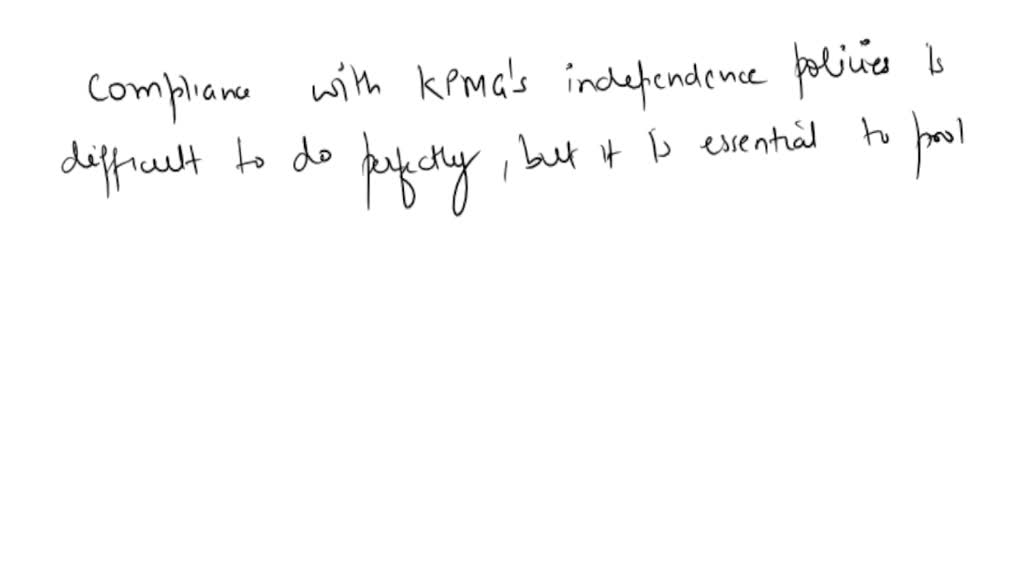 Compliance with KPMG's independence policies is
difficult to do perfectly, but it is essential to pool